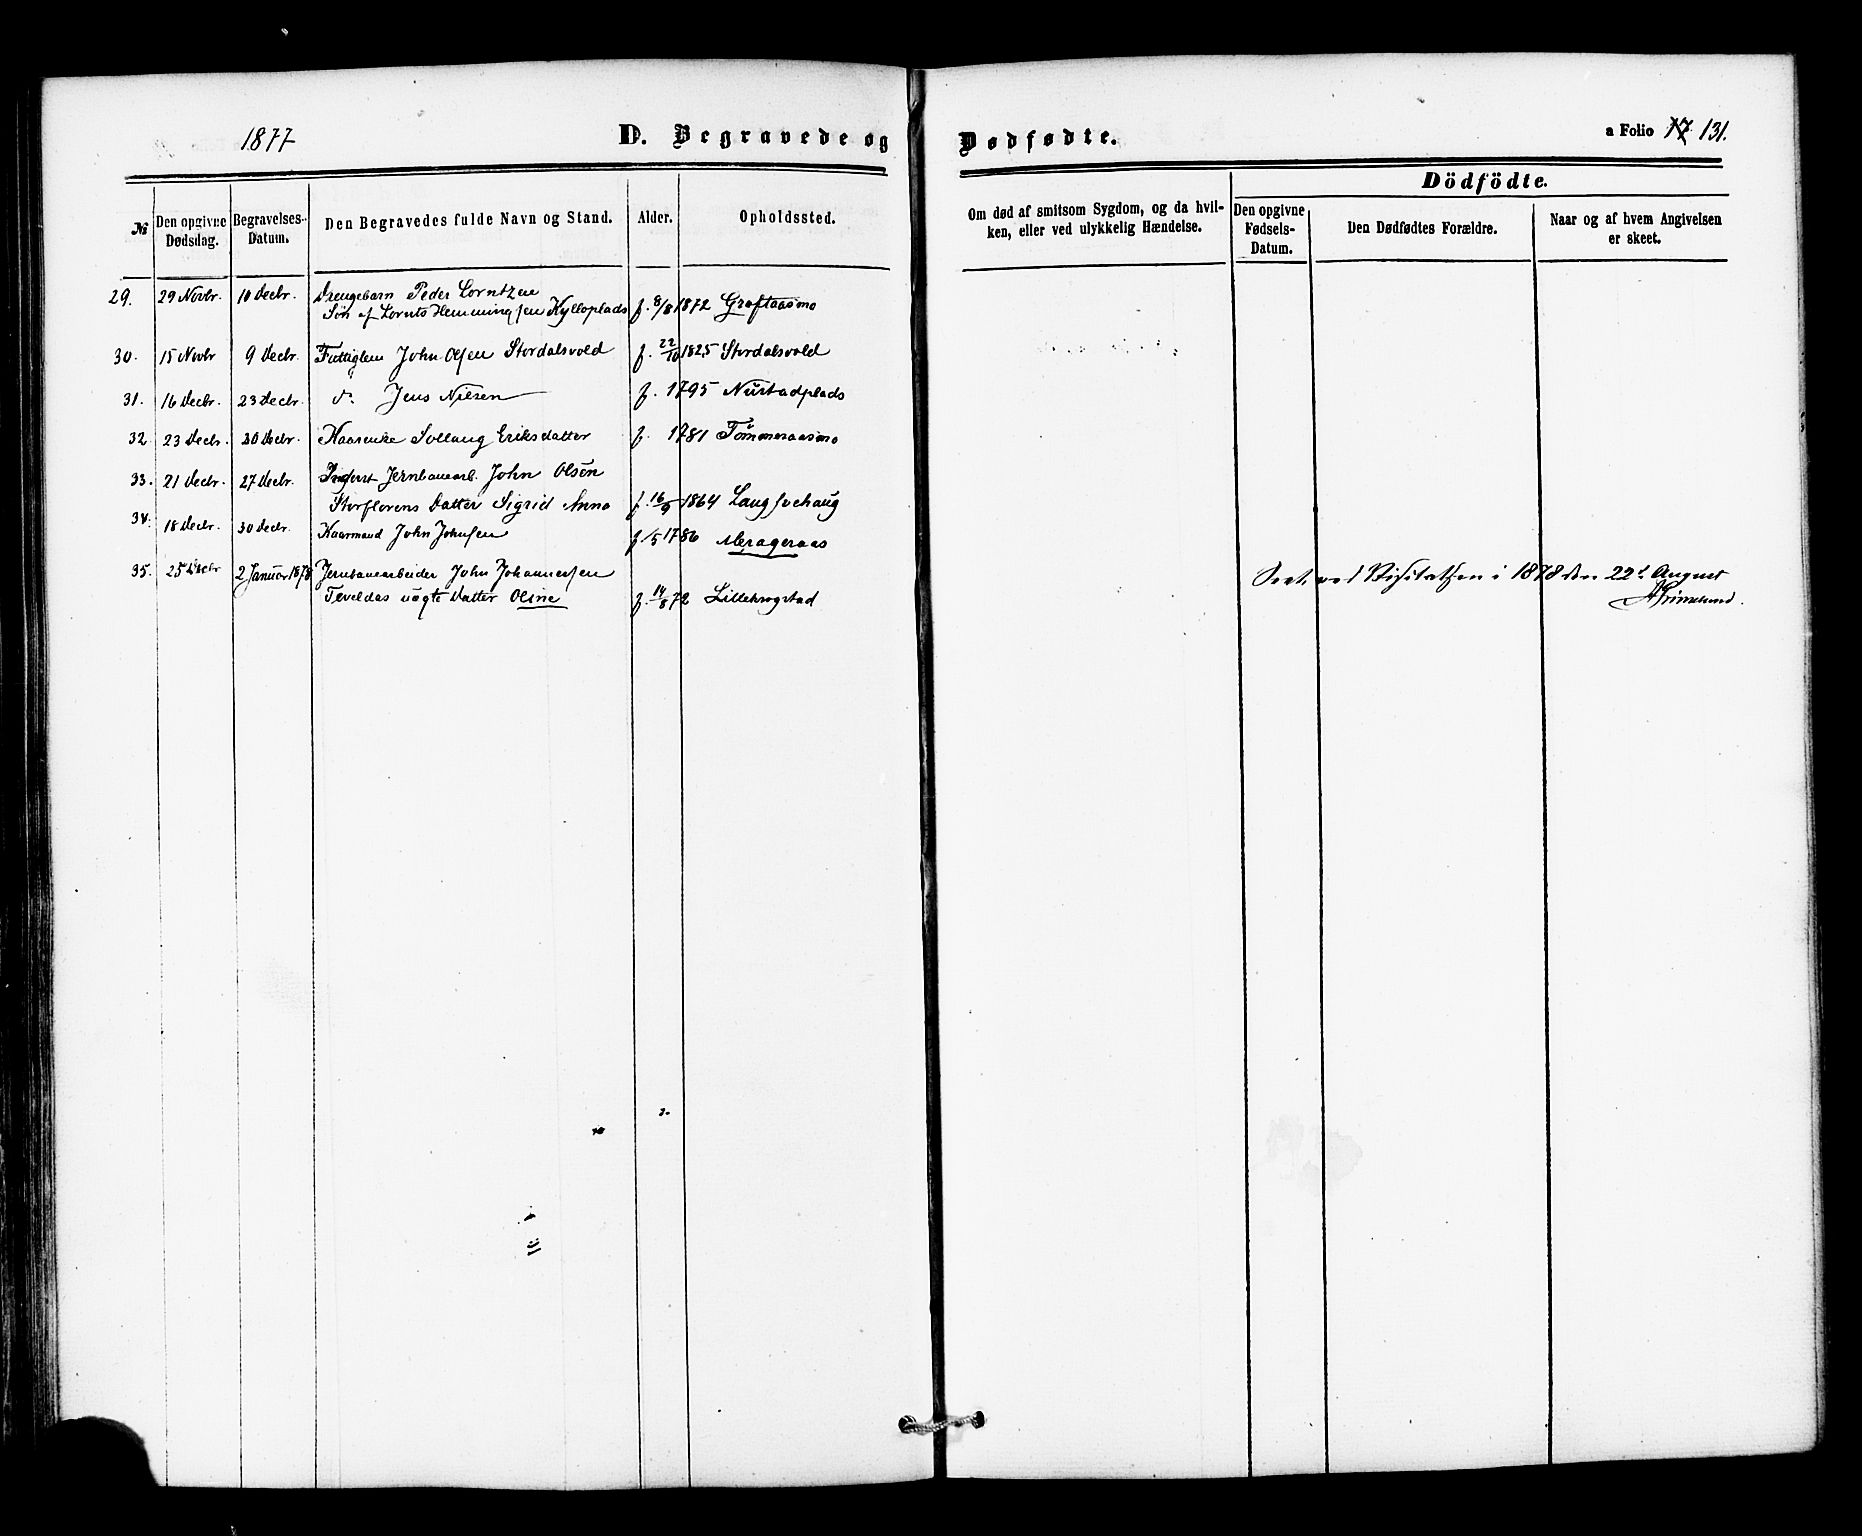 1877 D. Begravede og Dødfødte. a Folio 17 131.
Dödfödte.
№ Den opgivne Dødsdag. Begravelses-Datum. Den Begravedes fulde Navn og Stand. Alder. Opholdssted. Om død af smitsom Sygdom, og da hvilken, eller ved ulykkelig Hændelse. Den opgivne Fødsels-Datum. Den Dødfødtes Forældre. Naar og af hvem Angivelsen er skeet.
29. 29 Novbr. 10 Decbr. Drengebarn Peder Lorntzen
Søn af Lornts Hemmingsen Kylloplads f. 8/8 1872 Groftaasmo
30. 15 Novbr 9 Decbr. Fattiglem John Olsen Stordalsvold f. 22/10 1825 Stordalsvold
31. 16 Decbr. 23 Decbr. do Jens Nilsen f. 1795 Nustadplads
32. 23 Decbr. 30 Decbr. Kaarenke Sollaug Eriksdatter f. 1781 Tømmeraasmo
33. 21 Decbr. 27 Decbr. Inderst Jernbanearb. John Olsen
Storflorens Datter Sigrid Anna f. 16/9 1864 Langsvehaug
34. 18 Decbr. 30 Decbr. Kaarmand John Johnsen f. /5 1786 Merageraas
35. 25 Decbr 2 Januar 1878 Jernbanearbeider John Johannessen
Teveldas uægte Datter Oline f. 14/8 72 Lillekrogstad
Seet ved Visitatsen i 1878 den 22d August
AGrimelund.